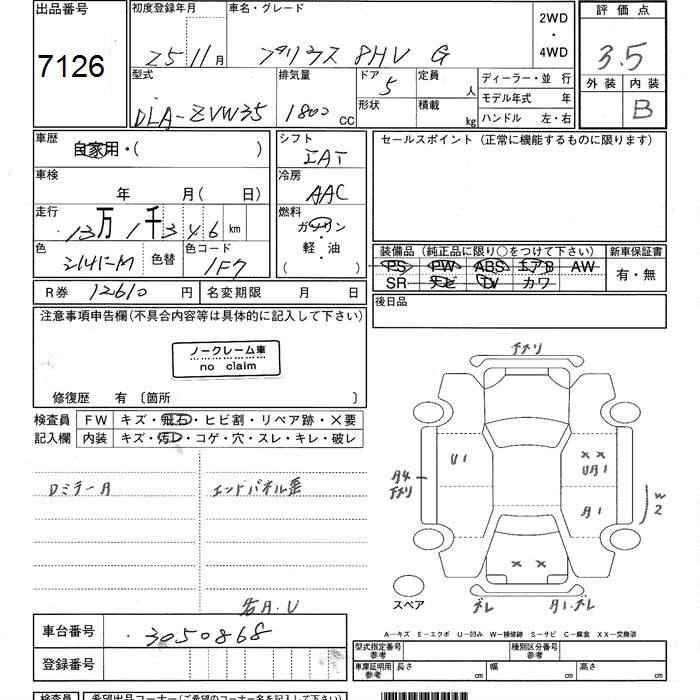 出品番号
7126
初度登録年月
25 11月
車名・グレード
プリウス PHV G
2WD
・
4WD
評価点
3.5
外装 内装
B
型式
DLA-ZVW35
排気量
1800 CC
ドア
5
形状
定員
人
積載
kg
ディーラー・並 行
モデル年式 年
ハンドル 左・右
車歴
自家用・( )
シフト
IAT
セールスポイント (正常に機能するものに限ります)
車検
年 月( 日)
冷房
AAC
走行
13万1千346km
燃料
ガソリン
・
軽・油
( )
色
シルバーM
色替
色コード
1F7
装備品 (純正品に限り○をつけて下さい)
PS PW ABS エアB AW
SR ナビ TV カワ
新車保証書
有・無
R券 12610 円
名変期限 月 日
後日品
注意事項申告欄(不具合内容等は具体的に記入して下さい)
ノークレーム車
no claim
修復歴 有 〔箇所 〕
検査員
記入欄
FW キズ・飛石・ヒビ割・リペア跡・×要
内装 キズ・汚レ・コゲ・穴・スレ・キレ・破レ
エンドパネル歪
U1
××
UA1
A1
W2
××
ズレ
A1・ズレ
スペア
A-キズ E-エクボ U-凹み W-補修跡 S-サビ C-腐食 XX-交換済
車台番号
3050868
登録番号
型式指定番号
参考
種別区分番号
参考
車庫証明用
参考
長さ cm
幅 cm
高さ cm
検査員
希望出品コーナー(ご希望のコーナー名を記入して下さい)